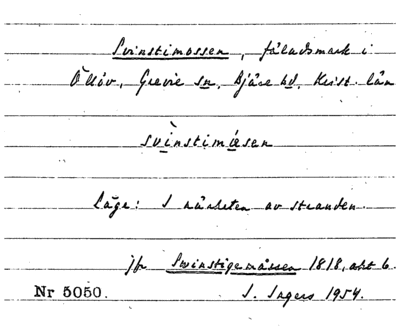 Svinstimossen, fäladsmark i
Öllöv, Grevie sn, Bjäre hd, Krist. län
svìnstimåsen
Läge: I närheten av stranden.
jfr Swinstigemåssen 1818, akt 6.
Nr 5050. I. Ingers 1954.